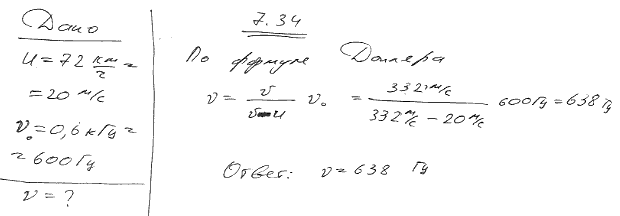 7.34
Дано
U = 72 км/г =
= 20 м/с
ν₀ = 0,6 кГц =
= 600 Гц
ν = ?
По формуле Доплера
ν = v/(v-u) ν₀ = 332 м/с / (332 м/с - 20 м/с) 600 Гц = 638 Гц
Ответ: ν = 638 Гц